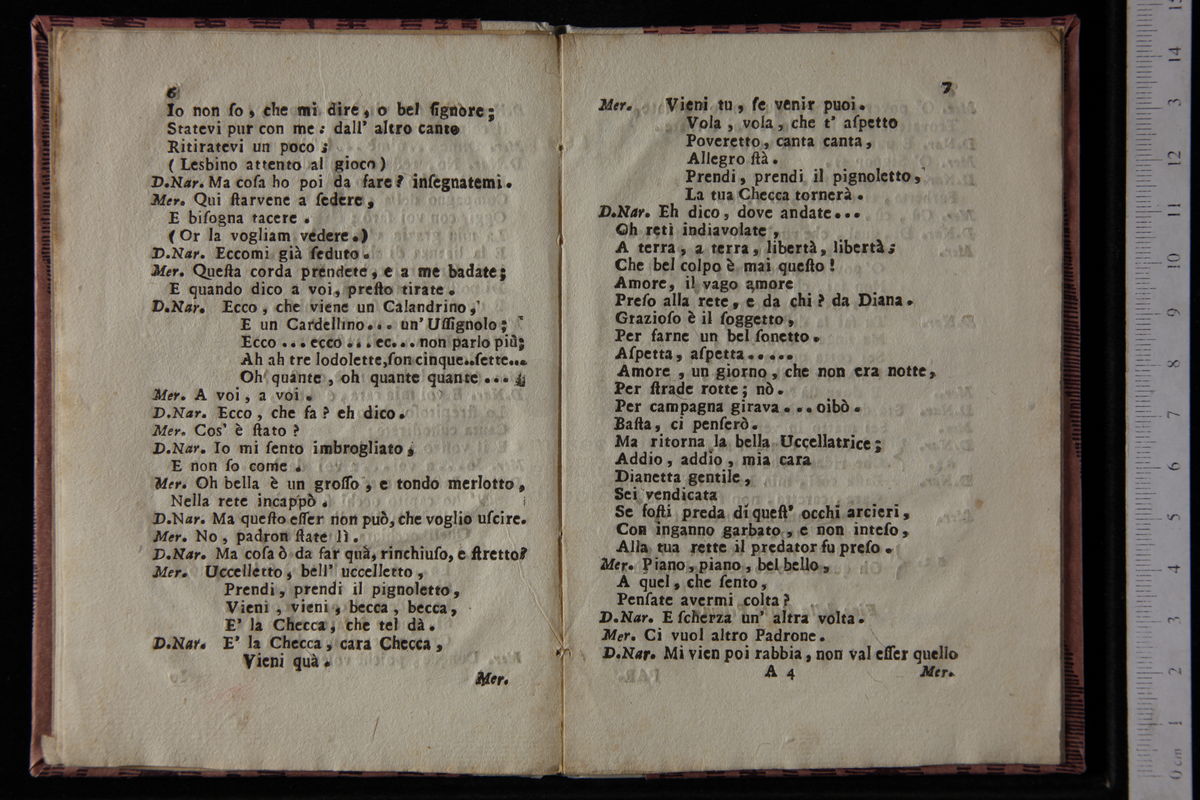 6
Io non ſo, che mi dire, o bel ſignore;
Statevi pur con me: dall' altro canto
Ritiratevi un poco;
(Lesbino attento al gioco)
D.Nar. Ma coſa ho poi da fare? inſegnatemi.
Mer. Qui ſtarvene a ſedere,
E biſogna tacere.
(Or la vogliam vedere.)
D.Nar. Eccomi già ſeduto.
Mer. Queſta corda prendete, e a me badate;
E quando dico a voi, preſto tirate.
D.Nar. Ecco, che viene un Calandrino,
E un Cardellino... un' Uſſignolo;
Ecco ... ecco ... ec... non parlo più;
Ah ah tre lodolette, ſon cinque..ſette...
Oh quante, oh quante quante ...
Mer. A voi, a voi.
D.Nar. Ecco, che fa? eh dico.
Mer. Cos' è ſtato?
D.Nar. Io mi ſento imbrogliato,
E non ſo come.
Mer. Oh bella è un groſſo, e tondo merlotto,
Nella rete incappò.
D.Nar. Ma queſto eſſer non può, che voglio uſcire.
Mer. No, padron ſtate lì.
D.Nar. Ma coſa ò da far quà, rinchiuſo, e ſtretto?
Mer. Uccelletto, bell' uccelletto,
Prendi, prendi il pignoletto,
Vieni, vieni, becca, becca,
E' la Checca, che tel dà.
D.Nar. E' la Checca, cara Checca,
Vieni quà.
Mer.
7
Mer. Vieni tu, ſe venir puoi.
Vola, vola, che t' aſpetto
Poveretto, canta canta,
Allegro ſtà.
Prendi, prendi il pignoletto,
La tua Checca tornerà.
D.Nar. Eh dico, dove andate...
Oh reti indiavolate,
A terra, a terra, libertà, libertà;
Che bel colpo è mai queſto!
Amore, il vago amore
Preſo alla rete, e da chi? da Diana.
Grazioſo è il ſoggetto,
Per farne un bel ſonetto.
Aſpetta, aſpetta.....
Amore, un giorno, che non era notte,
Per ſtrade rotte; nò.
Per campagna girava... oibò.
Baſta, ci penſerò.
Ma ritorna la bella Uccellatrice;
Addio, addio, mia cara
Dianetta gentile,
Sei vendicata
Se foſti preda di queſt' occhi arcieri,
Con inganno garbato, e non inteſo,
Alla tua rette il predator fu preſo.
Mer. Piano, piano, bel bello,
A quel, che ſento,
Penſate avermi colta?
D.Nar. E ſcherza un' altra volta.
Mer. Ci vuol altro Padrone.
D.Nar. Mi vien poi rabbia, non val eſſer quello
A 4 Mer.
0 cm 1 2 3 4 5 6 7 8 9 10 11 12 3 14 15